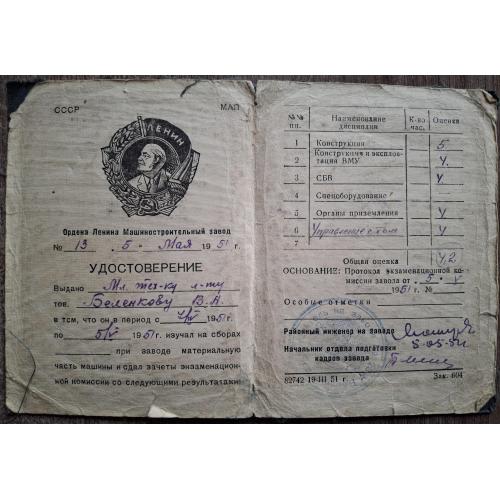 СССР МАП
ЛЕНИН
Ордена Ленина Машиностроительный завод
№ 13 5 Мая 1951 г.
УДОСТОВЕРЕНИЕ
Выдано Мл. тех-ку л-ту
тов. Беленкову В.А.
в том, что он в период с 4/IV 1951 г.
по 5/V 1951 г. изучал на сборах
при заводе материальную
часть машины и сдал зачеты экзаменационной комиссии со следующими результатами:
№№ пп. Наименование дисциплин К-во час. Оценка
1 Конструкция 5.
2 Конструкция и эксплоатация ВМУ 4.
3 СБВ 4.
4 Спецоборудование
5 Органы приземления 4
6 Управление 4
7
Общая оценка 4,2
ОСНОВАНИЕ: Протокол экзаменационной комиссии завода от „5“ V
1951 г. №
Особые отметки
Районный инженер на заводе
5-05-51
Начальник отдела подготовки
кадров завода
82742 19-III 51 г. Зак. 604